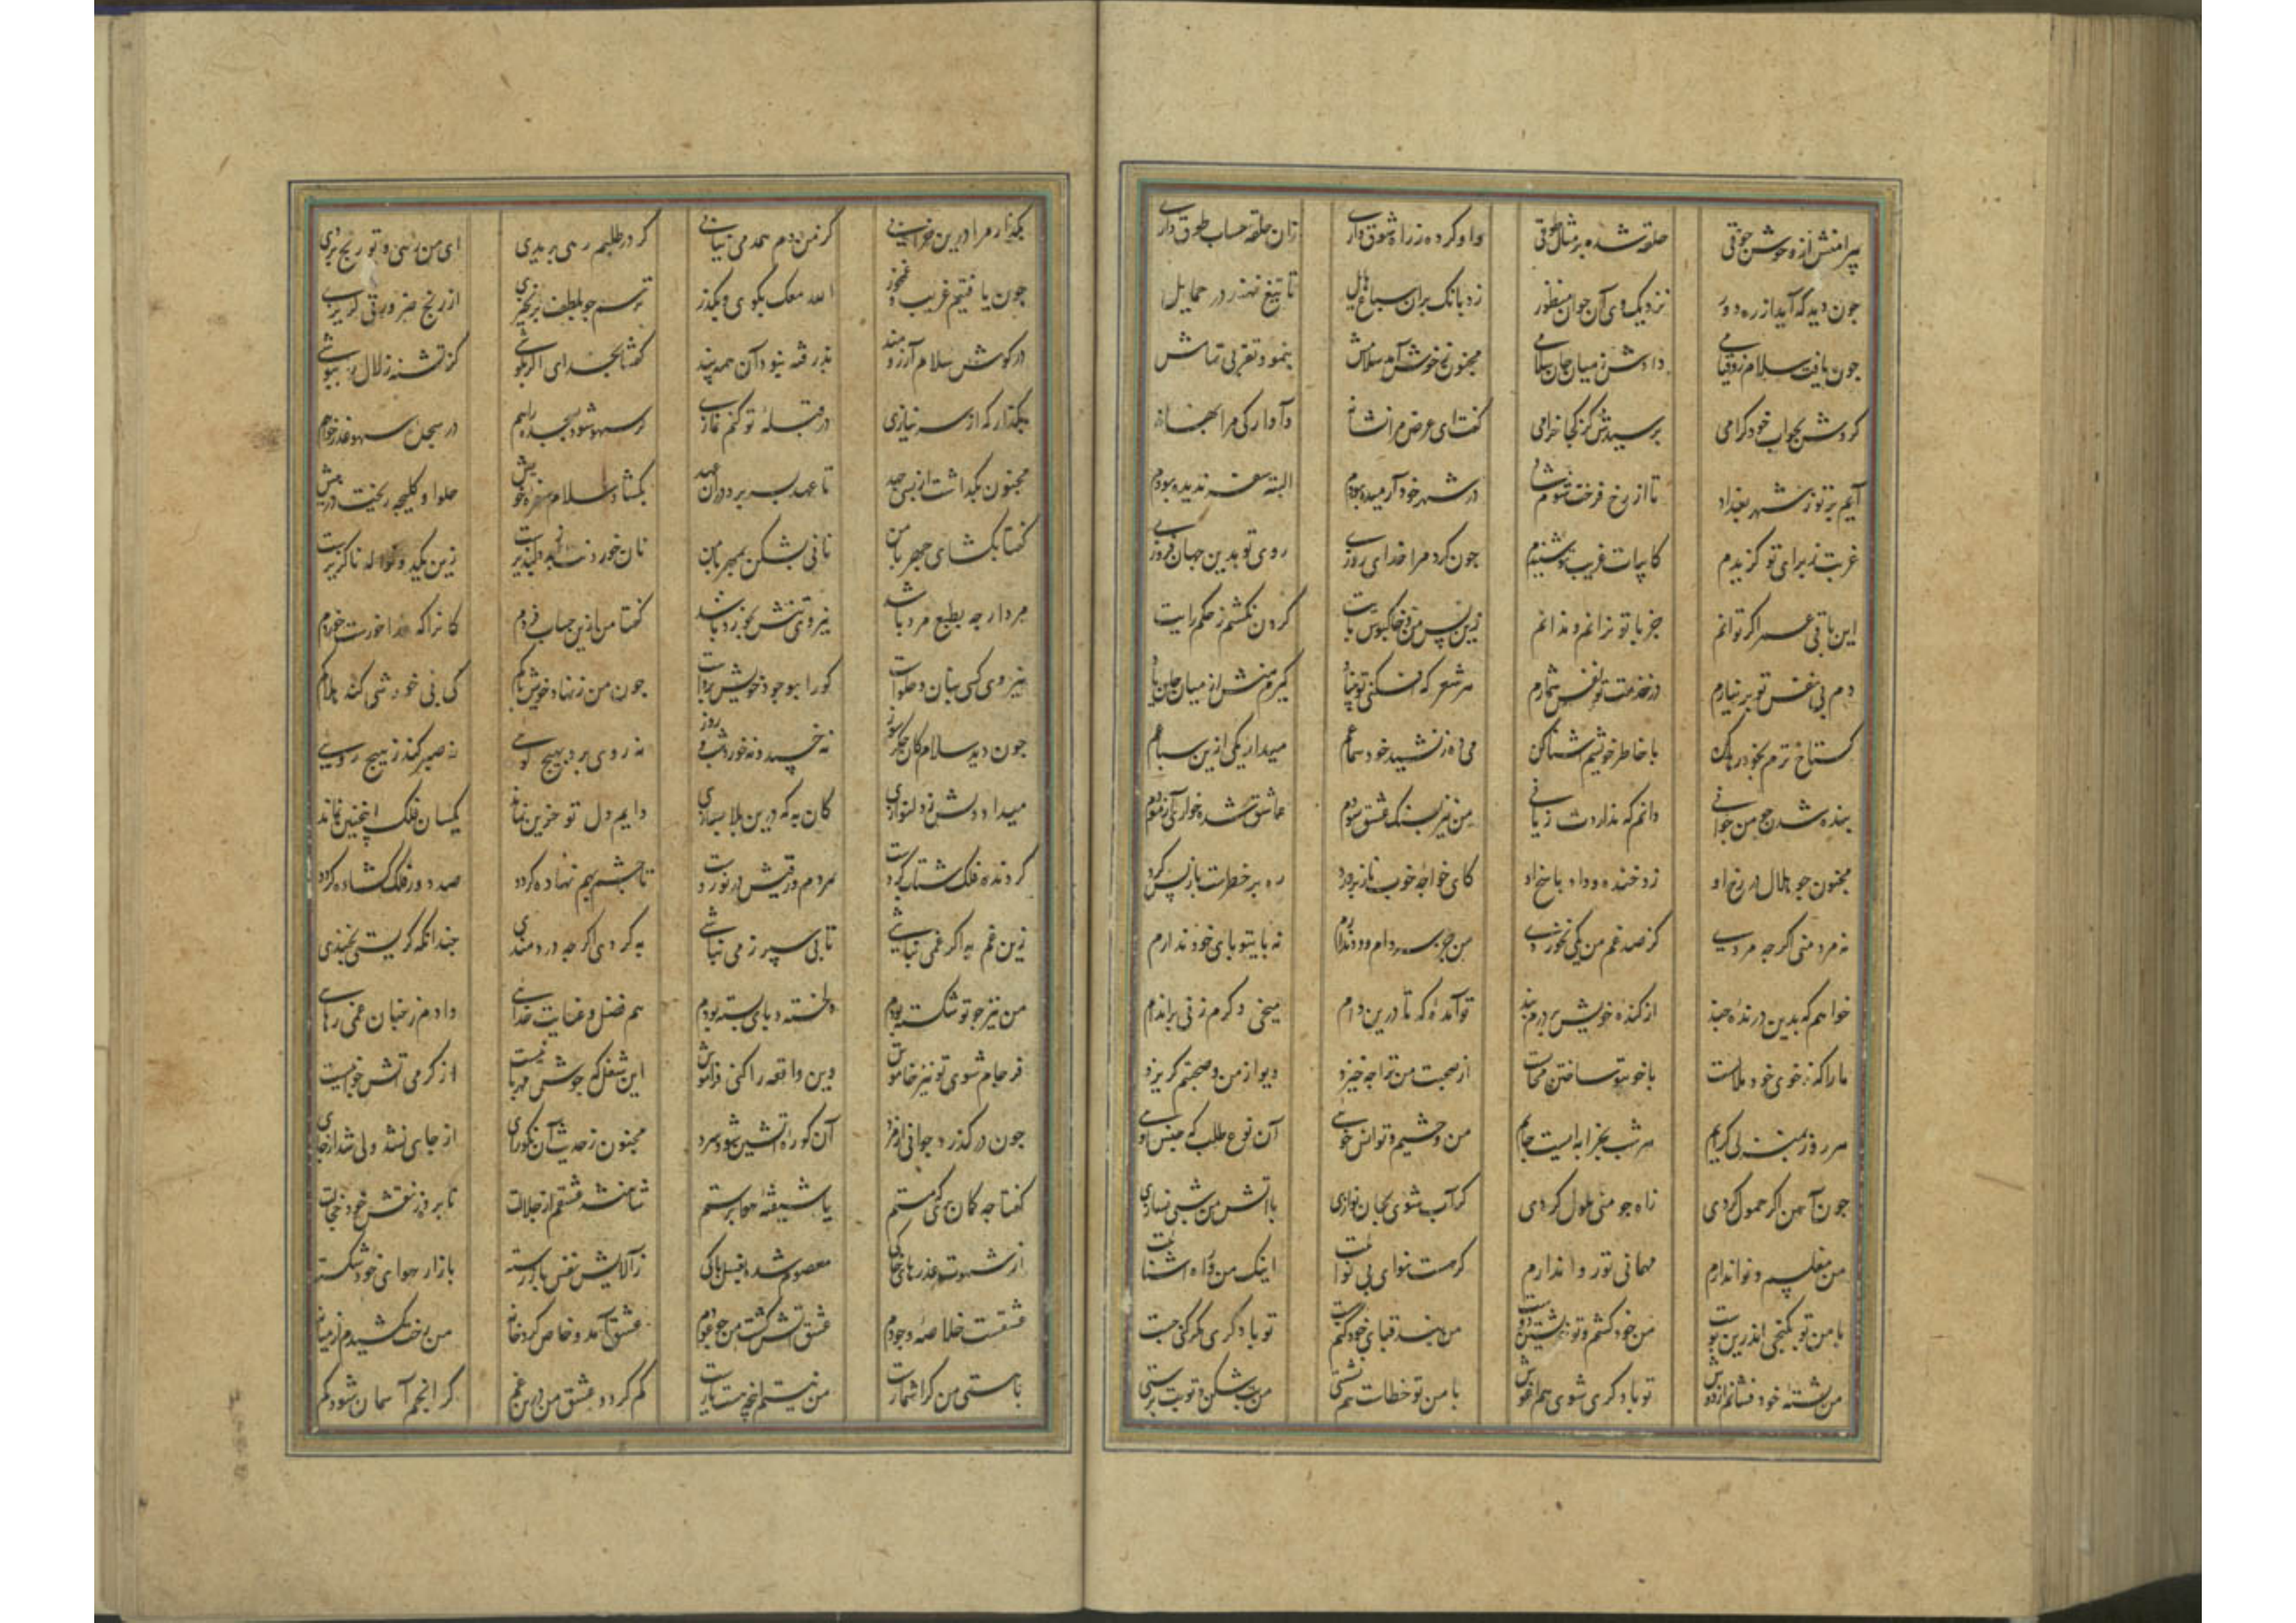 پیرامنش از وحوش جوقی حلقه شده بر مثال طوقی واوکرده ز راه شوق داری زان حلقه حساب طوق داری
جون دید که آید از ره دور نزدیک وی آن جوان منظور زد بانک بران سباع هایل تا تیغ نهند در حمایل
جون یافت سلام ازو قیامی دادش ز میان جان سلامی مجنون ز خوش آمد سلامش بنمود تقربی تمامش
کردش بجواب خود کرامی پرسیدش کز کجا خرامی کفت ای غرض مرا نشانه وآوارکی مرا بهانه
آیم بر تو ز شهر بغداد تا از رخ فرخت شوم شاد در شهر خود آرمیده بودم البته سفر ندیده بودم
غربت ز برای تو کزیدم کابیات غریب تو شنیدم جون کرد مرا خدای روزی روی تو بدین جهان فروزی
این باقی عمر اکر توانم جز با تو نرانم و ندانم زین پس من و خاکبوس پایت کردن نکشم ز حکم رایت
دم بی نفس تو بر نیارم در خدمت تو نفس شمارم هر شعر که افکنی تو بنیاد کیرم منش از میان جان یاد
کستاخ ترم بخود رها کن با خاطر خویشم آشنا کن می ده ز نشید خود سماعم میدار یکی ازین سباعم
بنده شدن جو من جوانی دانم که نداردت زیانی من نیز بسنک عشق سودم عاشق شده خواری آزمودم
مجنون جو هلال در رخ او زد خنده و داد پاسخ او کای خواجه خوب ناز پرورد ره بر خطرست باز پس کرد
نه مرد منی اکرجه مردی کز صد غم من یکی نخوردی من جز سر دام و دد ندارم نه پای تو پای خود ندارم
خواهم که بدین درنده جند از کنده خویش بر درم بند تو آمده که تا درین دام میخی دکرم زنی بر اندام
ما را که ز خوی خود ملالست با خوی تو ساختن محالست از صحبت من ترا جه خیزد دیو از من و صحبتم کریزد
هر روز بمنزلی کرایم هر شب بخرابه ایست جایم من وحشیم و تو انس خویی آن نوع طلب که جنس اویی
جون آهن اکر حمول کردی زاه جو منی ملول کردی کر آب شوی بجان نوازی با آتش من شبی نسازی
من مفلسم و نوا ندارم مهمانی تو روا ندارم کر هست نوای بی نواییت اینک من و راه آشناییت
با من تو بکنجی اندرین پوست من خود کشم و تو خویشتن دوست من بند قبای خود کنم تو با دکری کمر کنی جست
من خود فشانم از دوش تو با دکری شوی هم آغوش با من تو خطاست هم نشستی من بت شکن و تو بت پرستی
بکذار مرا درین خرابی کز من دم همدمی نیابی کر در طلبم رهی بریدی ای من رهی و تو رنج دیدی
جون یافتیم غریب و غمخور الله معک بکوی و بکذر ترسم جو بلطف برنخیزی از رنج ضرورتی کریزی
در کوش سلام آرزومند پذرفته نبود آن همه پند کفتا بخدای اکر بکوشی کز تشنه زلال را بپوشی
بکذار که از سر نیازی در قبله تو کنم نمازی کر سهو شود بسجده راهم در سجده سهو عذر خواهم
مجنون بکذاشت از بس جهد تا عهد بسر برد در آن عهد بکشاد سلام سفره خویش حلوا و کلیجه ریخت در پیش
کفتا بکشای جهر با من نانی بشکن بمهر با من نا خوردنت ار جه دلپذیرست زین یکدو نواله ناکزیرست
مرد ار جه بطبع مرد باشد نیروی تنش بخورد باشد کفتا من ازین حساب فردم کانرا که غذا خورست خوردم
نیروی کسی بنان و حلواست کو را بوجود خویش پرواست جون من ز نهاد خویش پاکم کی بی خورشی کند هلاکم
جون دید سلام کان جکر سوز نه خسپد و نه خورد شب و روز نه روی برد بهیج کویی نه صبر کند ز هیج رویی
میداد دلش ز دلنوازی کان به که درین بلا بسازی دایم دل تو حزین نماند یکسان فلک اینچنین نماند
کردنده فلک شتاب کردست هر دم ورقیش در نوردست تا جشم بهم نهاده کردد صد در ز فلک کشاده کردد
زین غم به اکر غمین نباشی تا پی سپر زمین نباشی به کردی اکر جه دردمندی جندانکه کریستی بخندی
من نیز جو تو شکسته بودم دلخسته و پای بسته بودم هم فضل و عنایت خدایی دادم ز جنان غمی رهایی
فرجام شوی تو نیز خاموش وین واقعه را کنی فراموش این شعله که جوش مهربانیست از کرمی آتش جوانیست
جون در کذرد جوانی از مرد آن کوره آتشین شود سرد مجنون ز حدیث آن نکو رای از جای نشد ولی شد از جای
کفتا جه کمان بری که مستم یا شیفته هوا پرستم شاهنشه عشقم از جلالت نابرده ز نفس خود خجالت
از شهوت عذرهای خاکی معصوم شده بغسل پاکی زآلایش نفس باز رسته بازار هوای خود شکسته
عشقست خلاصه وجودم عشق آتش کشت و من جو عودم عشق آمد و خاص کرد خانه من رخت کشیدم از میانه
با هستی من کرا شمارست من نیستم آنچه هست یارست کم کردد عشق من درین غم کر انجم آسمان شود کم